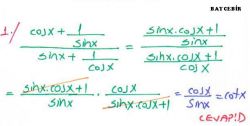 BATCEBİR
1./ (cosx + 1/sinx) / (sinx + 1/cosx) = ((sinx.cosx+1)/sinx) / ((sinx.cosx+1)/cosx)
= (sinx.cosx+1)/sinx . cosx/(sinx.cosx+1) = cosx/sinx = cotx
CEVAP:D